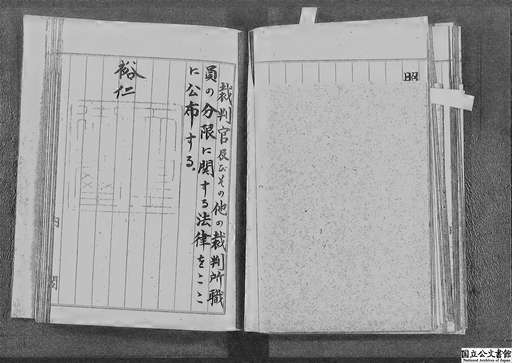 裁判官及びその他の裁判所職
員の分限に関する法律をここ
に公布する。
裕仁
内閣
国立公文書館
National Archives of Japan